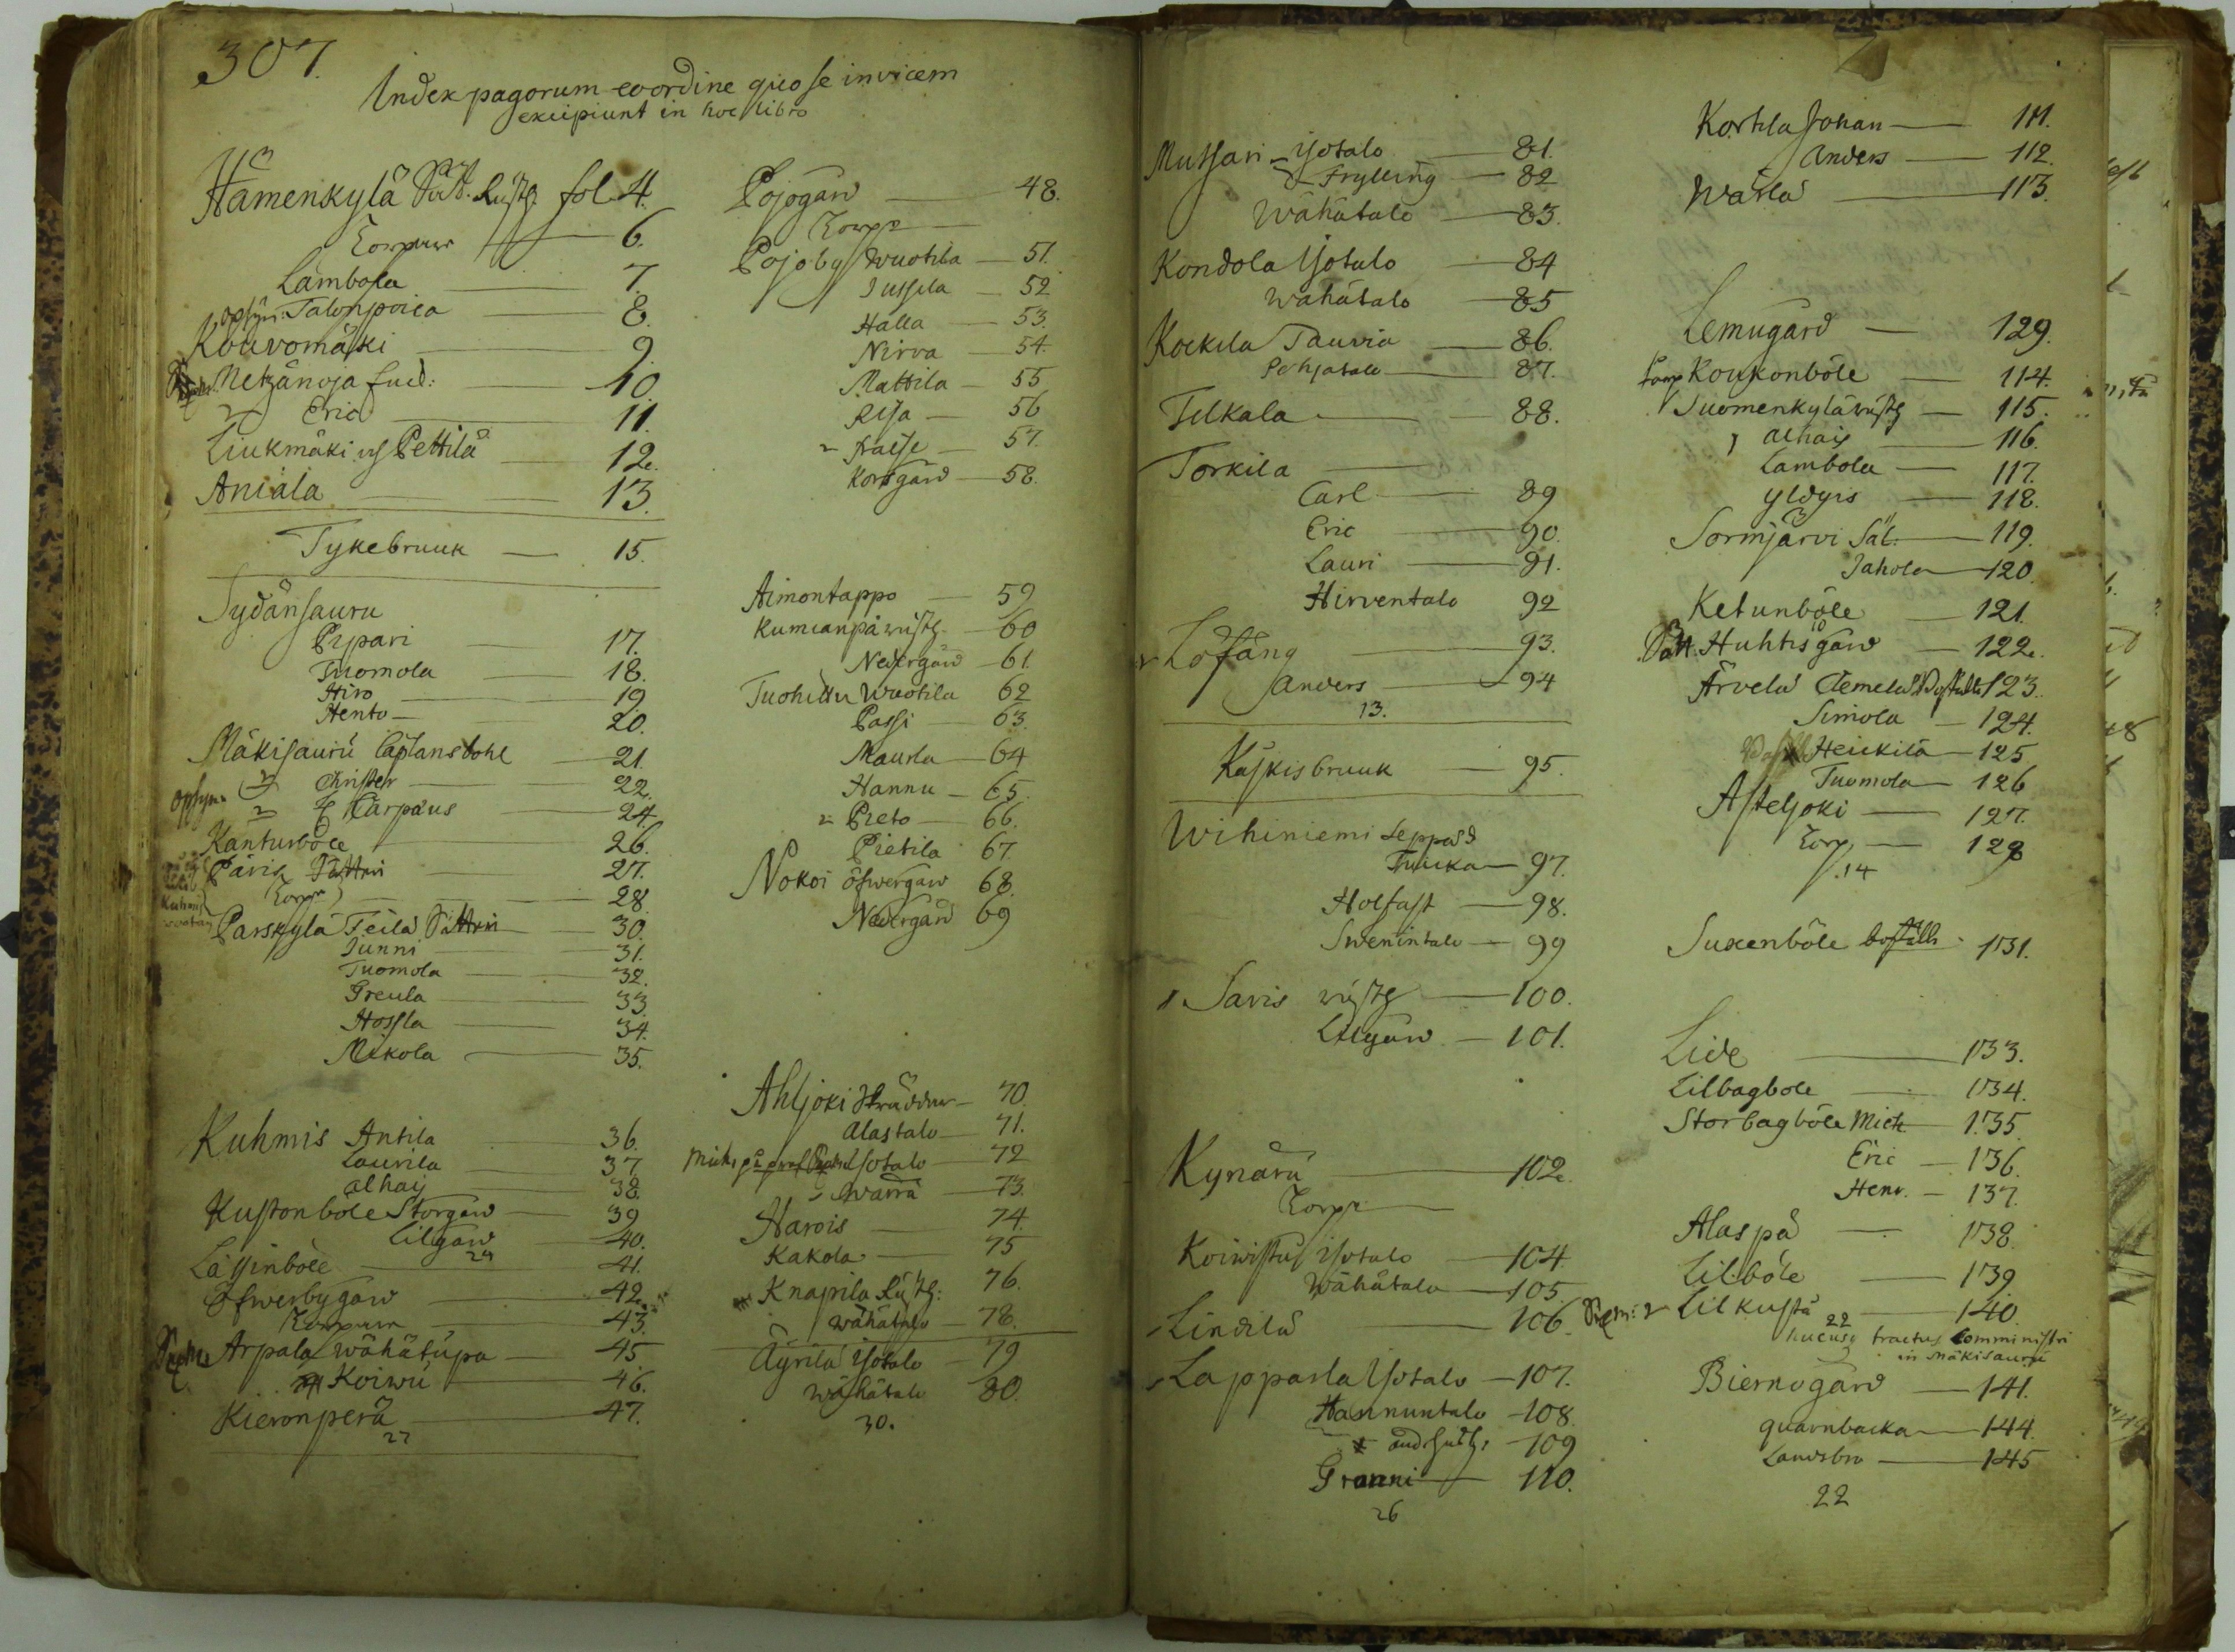 307.
Index pagorum eo ordine quo se invicem
excipiunt in hoc libro
Hämenkylä Sätt. Rusth. fol. 4.
Torpare 6.
Lambola 7.
Talonpoica 8.
Kouvomäki 9.
Metzänoja 10.
Eric 11.
Liukmäki Pettilä 12.
Aniala 13.
Tykebruuk 15.
Sydänsauru
Pipari 17.
Tuomola 18.
Hiro 19
Hento 20.
Mäkisauru Caplansbohl 21.
Christer 22.
Kärpäus 24.
Kantusböle 26.
Päris Sätteri 27.
Torpr 28.
Parskylä Teilä Sätteri 30.
Junni 31.
Tuomola 32.
Greula 33.
Hossla 34.
Mikola 35.
Kuhmis Antila 36.
Laurila 37
alhais 38.
Kustonböle Storgård 39
Lilgård 40.
Lässinböle 41.
29
Öfwerbygård 42.
Torpare 43.
Arpala wähätupa 45
Koiwu 46.
Kieronperä 47.
27
Pojogård 48.
Torpr
Pojoby Wuotila 51.
Jussila 52
Halla 53.
Nirva 54.
Mattila 55
Reja 56
57.
Korsgård 58.
Aimontappo 59
Kumianpä rusth. 60
Nedergård 61.
Wuotila 62
Passi 63.
Maurla 64
Hannu 65.
Preto 66.
Pietila 67.
Nokoi öfwergård 68.
Nedergård 69
Ahljoki Skräddar 70
Alastalo 71.
Isotalo 72
Warra 73.
Harois 74.
Kakola 75
Knapila Rusth: 76.
wähätalo 78.
Äyrilä Isotalo 79
wähätalo 80.
30.
Mussari Isotalo 81.
Frylling 82
Wähätalo 83.
Kondola Isotalo 84
wähätalo 85
Kockila Tauria 86.
Pohjatalo 87.
Tilkala 88.
Torkila
Carl 89
Eric 90.
Lauri 91.
Hirventalo 92
Löfäng 93.
Anders 94
13.
Käskisbruuk 95.
Wihiniemi Seppäs
97.
Holfast 98.
Swenintalo 99
Saris rusth 100.
Lilgård 101.
Kynärä 102.
Torpr
Koiwistu Isotalo 104
Wähätalo 105.
Lindila 106.
Lapparla Isotalo 107.
Hannuntalo 108.
109
Granni 110.
26
Kortila Johan 111.
Anders 112.
Wärlä 113.
Lemugård 129.
Koukonböle 114.
Suomenkylä rusth 115.
alhais 116.
Lambola 117.
yldgis 118.
Sormjärvi Sät. 119.
Jahola 120.
Ketunböle 121.
Sätt. Huhtisgård 122.
Ärvelä Clemela 123.
Simola 124.
Heickilä 125
Tuomola 126
Asteljoki 127.
Torp. 128
14
Suxenböle boställe 131.
Lide 133.
Lilbagböle 134.
Storbagböle Mich 135.
Eric 136.
Henr. 137.
Alaspä 138.
Lilböle 139.
Lilkustä 140.
22
hucusq tractus Comministri
in Mäkisauru
Biernogård 141.
quarnbacka 144.
Landsbro 145
22